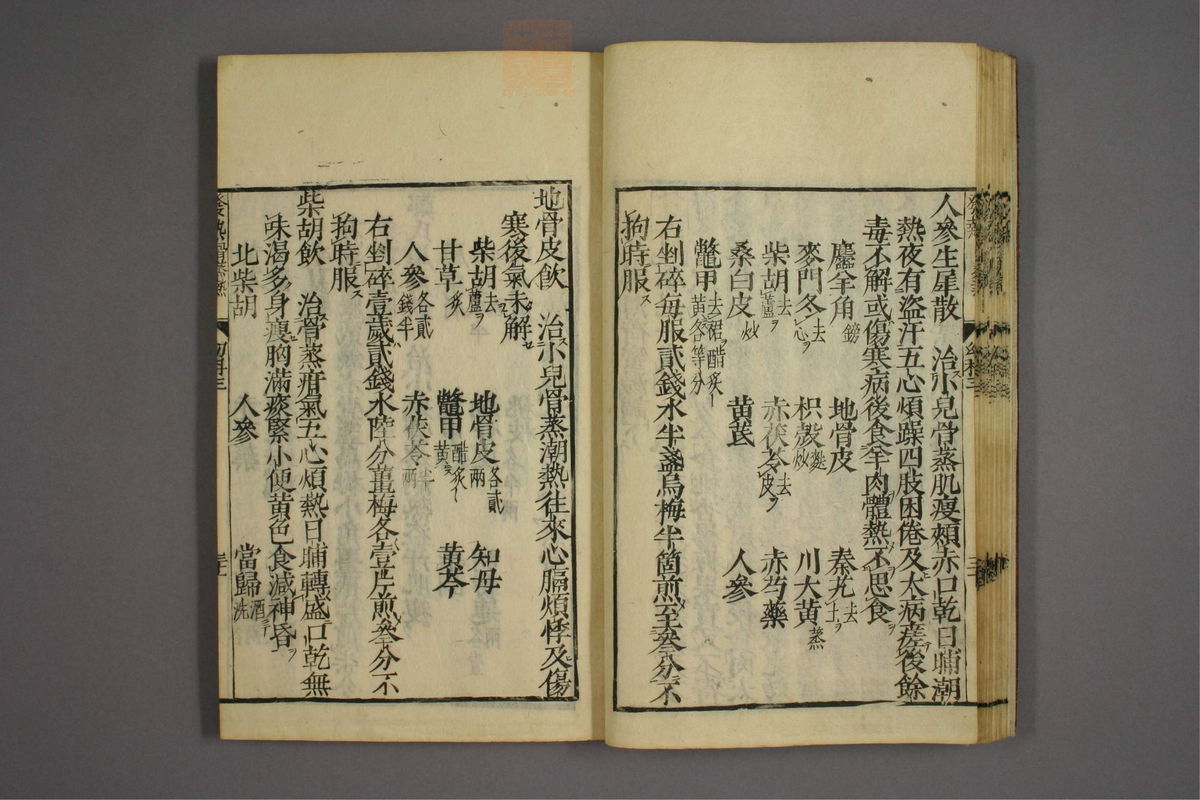 人參生犀散　治小兒骨蒸肌瘦頰赤口乾日晡潮
熱夜有盜汗五心煩躁四肢困倦及大病瘥後餘
毒不解或傷寒病後食羊肉體熱不思食
羚羊角鎊　地骨皮　秦艽去土
麥門冬去心　枳殼麩炒　川大黃蒸
柴胡去蘆　赤茯苓去皮　赤芍藥
桑白皮炒　黃芪　人參
鱉甲去裙醋炙黃各等分
右剉碎每服貳錢水半盞烏梅半箇煎至叄分不
拘時服
地骨皮飲　治小兒骨蒸潮熱往來心膈煩悸及傷
寒後氣未解
柴胡去蘆　地骨皮各貳兩　知母
甘草炙　鱉甲醋炙黃　黃芩
人參各貳錢半　赤茯苓半兩
右剉碎壹歲貳錢水陸分薑梅各壹片煎叄分不
拘時服
柴胡飲　治骨蒸疳氣五心煩熱日晡轉盛口乾無
味渴多身瘦胸滿痰緊小便黃色食減神昏
北柴胡　人參　當歸酒洗